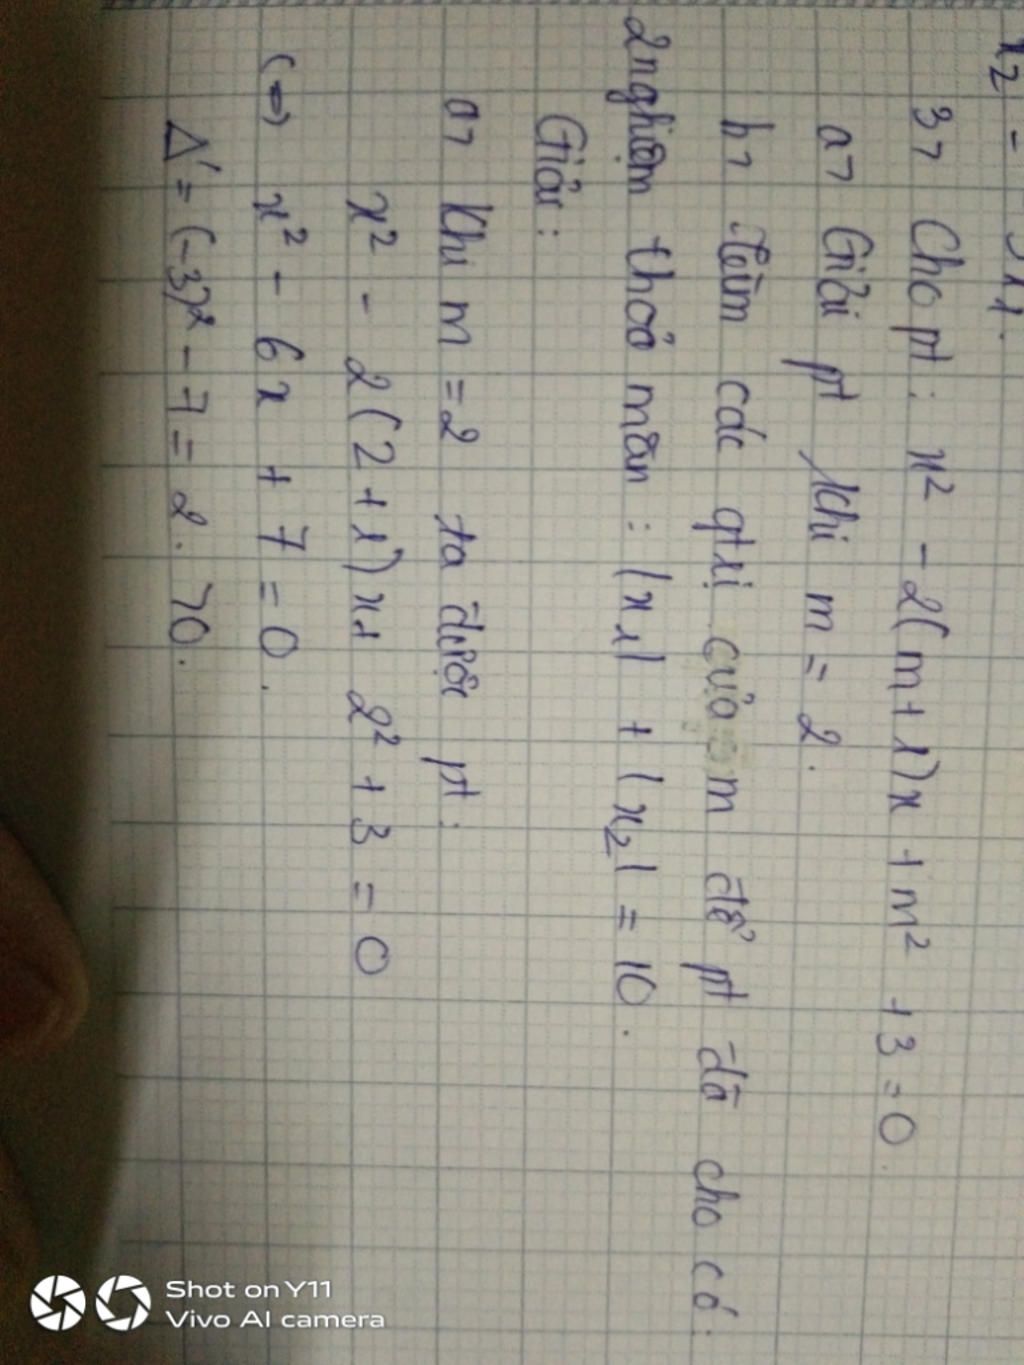 x₂ =
3, Cho pt: x² - 2(m+1)x + m² + 3 = 0.
a, Giải pt khi m = 2.
b, tìm các gtrị của m để pt đã cho có
2 nghiệm thoả mãn: |x₁| + |x₂| = 10.
Giải:
a, Khi m = 2 ta được pt:
x² - 2(2+1)x + 2² + 3 = 0
(⇔) x² - 6x + 7 = 0.
Δ' = (-3)² - 7 = 2. >0.
Shot on Y11
Vivo AI camera